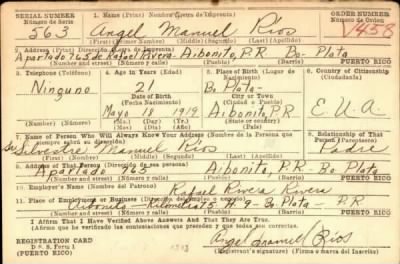 SERIAL NUMBER 1. Name (Print) Nombre (Letra de Imprenta) ORDER NUMBER
Número de Serie Número de Orden
563 Angel Manuel Rios V458
(First) (Nombre) (Middle) (Segundo) (Last) (Apellido)
2. Address (Print) Dirección (Letra de Imprenta)
Apartado 765 de Rafael Rivera - Aibonito, P.R. Bo- Plata
(Number and street) (Número y calle) (Town) (Población) PUERTO RICO
3. Telephone (Teléfono) 4. Age in Years (Edad) 5. Place of Birth (Lugar de Nacimiento) 6. Country of Citizenship (Ciudadanía)
Ninguno 21 Bo Plata
Date of Birth City or Town
(Fecha Nacimiento) (Ciudad o Población)
Mayo 18 1919 Aibonito, P.R. E.U.A.
(Number) (Número) (Mo.) (Day) (Yr.) PUERTO RICO
(Mes) (Día) (Año)
7. Name of Person Who Will Always Know Your Address (Nombre de la Persona que siempre sabrá su dirección) 8. Relationship of That Person (Parentesco)
Silvestre Manuel Rios Padre
(First) (Nombre) (Middle) (Segundo) (Last) (Apellido)
9. Address of That Person (Dirección de esa persona)
Apartado 765 Aibonito, P.R. Bo- Plata
(Number and street) (Número y calle) (Town) (Población) PUERTO RICO
10. Employer's Name (Nombre del Patrono)
Rafael Rivera Rivera
11. Place of Employment or Business (Dirección del empleo o negocio)
Aibonito - Kilometro 75 H. 9 - Bo Plata - P.R
(Number and street) (Número y calle) (Town) (Población) PUERTO RICO
I Affirm That I Have Verified Above Answers And That They Are True.
Afirmo que he verificado las contestaciones que preceden y que todas son correctas.
REGISTRATION CARD
D. S. S. Form 1
(PUERTO RICO) Angel Manuel Rios
(Registrant's signature) (Firma del inscrito)